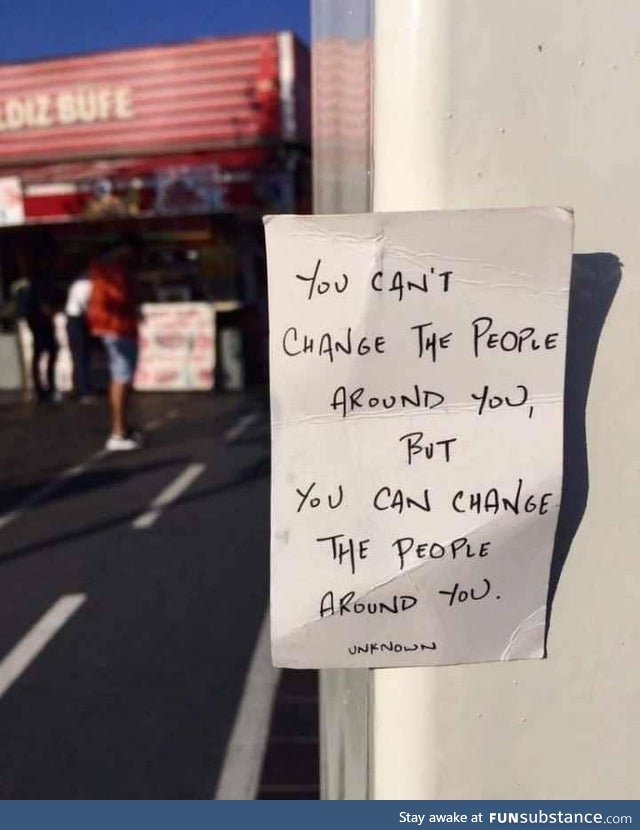 LDIZ BÜFE
YOU CAN'T
CHANGE THE PEOPLE
AROUND YOU,
BUT
YOU CAN CHANGE
THE PEOPLE
AROUND YOU.
UNKNOWN
Stay awake at FUNsubstance.com